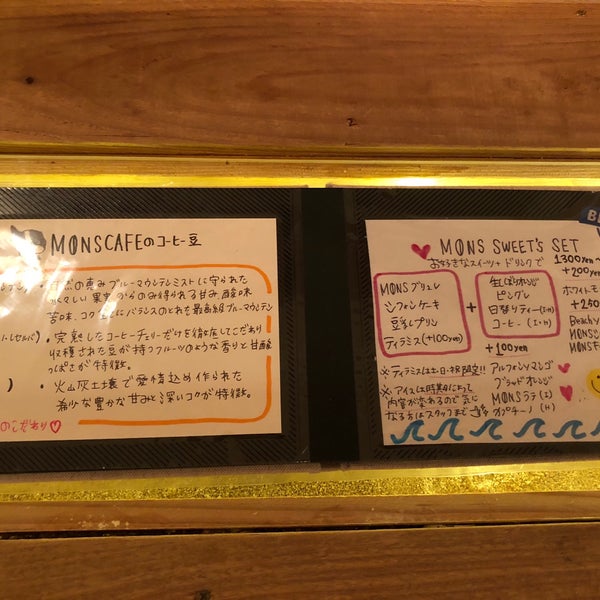 MONSCAFEのコーヒー豆
の恵みブルーマウンテンミストに守られた
果実からのみ得られる甘み、酸味
苦味、コク
バランスのとれた最高級ブルーマウンテン
・完熟したコーヒーチェリーだけを
収穫された豆が持つフルーツのような香りと甘酸
っぱさが特徴。
・火山灰土壌で愛情込め作られた
希少な豊かな甘みと深いコクが特徴。
のこだわり♡
MONS SWEET'S SET
お好きなスイーツ+ドリンクで
1300yen〜
+200yen
MONSブリュレ
シフォンケーキ
豆乳プリン
ティラミス(+100yen)
+
生しぼりオレンジ
ピングレ
日替りティー(I・H)
コーヒー(I・H)
+100yen
アルフォンソマンゴ
ブラッドオレンジ
MONSラテ(I)
カプチーノ(H)
※ティラミスは土・日・祝限定!!
※アイスは時期によって
内容が変わるので気に
なる方はスタッフまで
ホワイトモ
+250
Beachy
MONS
MONSF